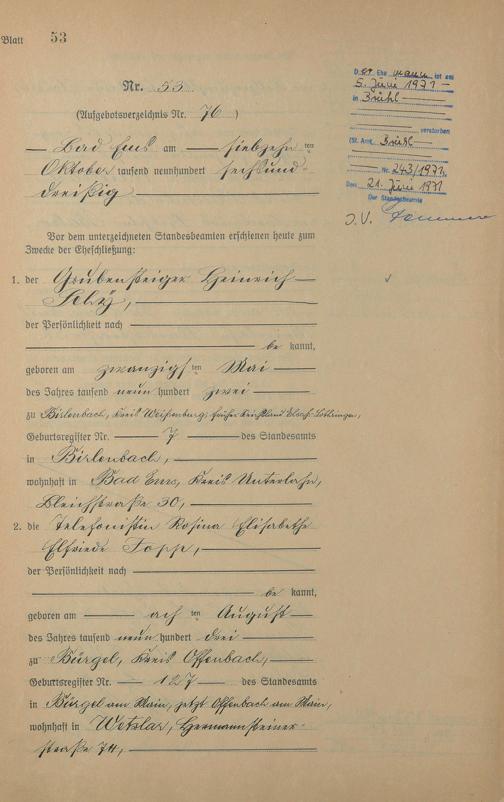 Blatt 53
Nr. 53
(Aufgebotsverzeichnis Nr. 76)
Bad Ems am siebzehn ten
Oktober tausend neunhundert sechsund-
dreißig
Vor dem unterzeichneten Standesbeamten erschienen heute zum
Zwecke der Eheschließung:
1. der Grubensteiger Heinrich
der Persönlichkeit nach
be kannt,
geboren am zwanzigs ten Mai
des Jahres tausend neun hundert zwei
zu Birlenbach, Kreis Weißenburg, früher Reichsland Elsaß-Lothringen,
Geburtsregister Nr. 7 des Standesamts
in Birlenbach,
wohnhaft in Bad Ems, Kreis Unterlahn,
Bleichstraße 30,
2. die Telefonistin Rosina Elisabethe
Elfriede Topp,
der Persönlichkeit nach
be kannt,
geboren am ach ten August
des Jahres tausend neun hundert drei
zu Bürgel, Kreis Offenbach,
Geburtsregister Nr. 127 des Standesamts
in Bürgel am Main, jetzt Offenbach am Main,
wohnhaft in Wetzlar, Hermannsteiner-
straße 74,
Der Ehemann ist am
5. Juni 1971
in Brühl
verstorben
(St. Amt. Brühl
Nr. 243/1971)
Den 21. Juni 1971
Der Standesbeamte
J.V.